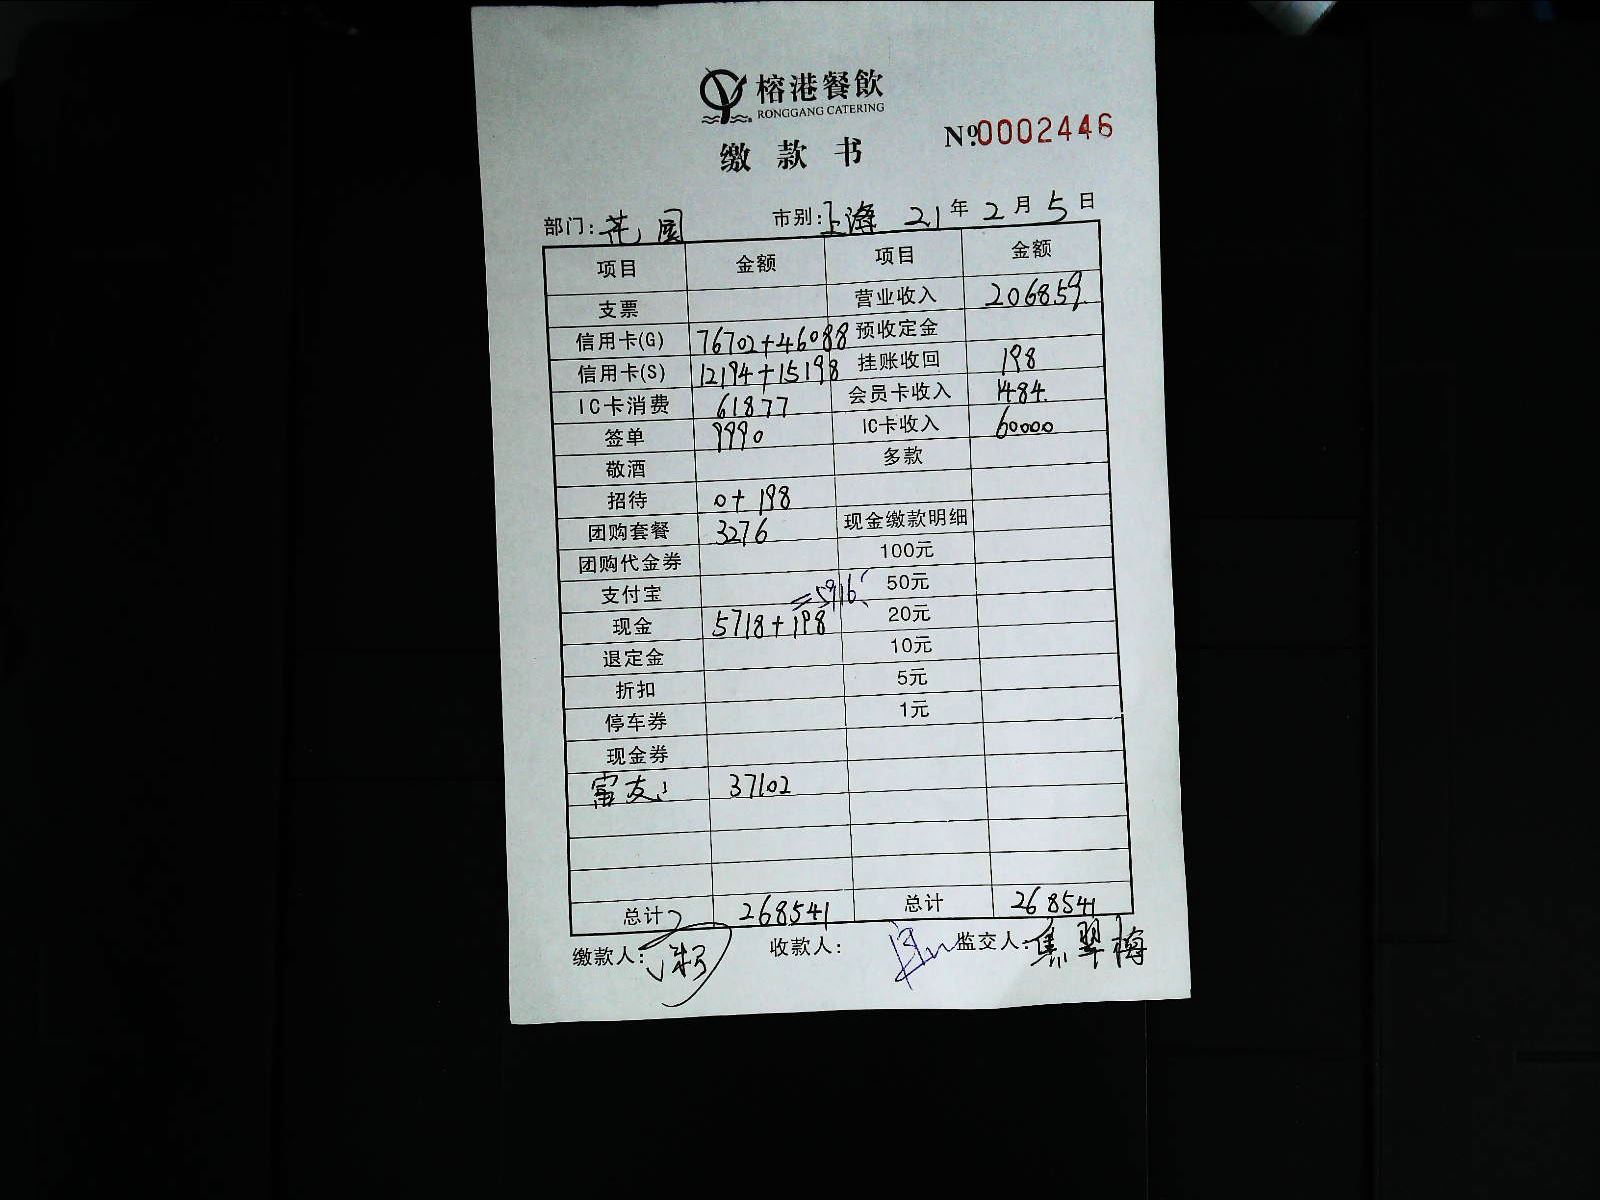 榕港餐飲
RONGGANG CATERING
缴款书
№0002446
部门:花园 市别:上海 21年2月5日
项目 金额 项目 金额
支票 营业收入 206859
信用卡(G) 76702+46088 预收定金
信用卡(S) 12194+15198 挂账收回 198
IC卡消费 61877 会员卡收入 1484
签单 9990 IC卡收入 60000
敬酒 多款
招待 0+198
团购套餐 3276 现金缴款明细
团购代金券 100元
支付宝 =5916 50元
现金 5718+198 20元
退定金 10元
折扣 5元
停车券 1元
现金券
富友 37102
总计 268541 总计 268541
缴款人: 收款人: 监交人:焦翠梅